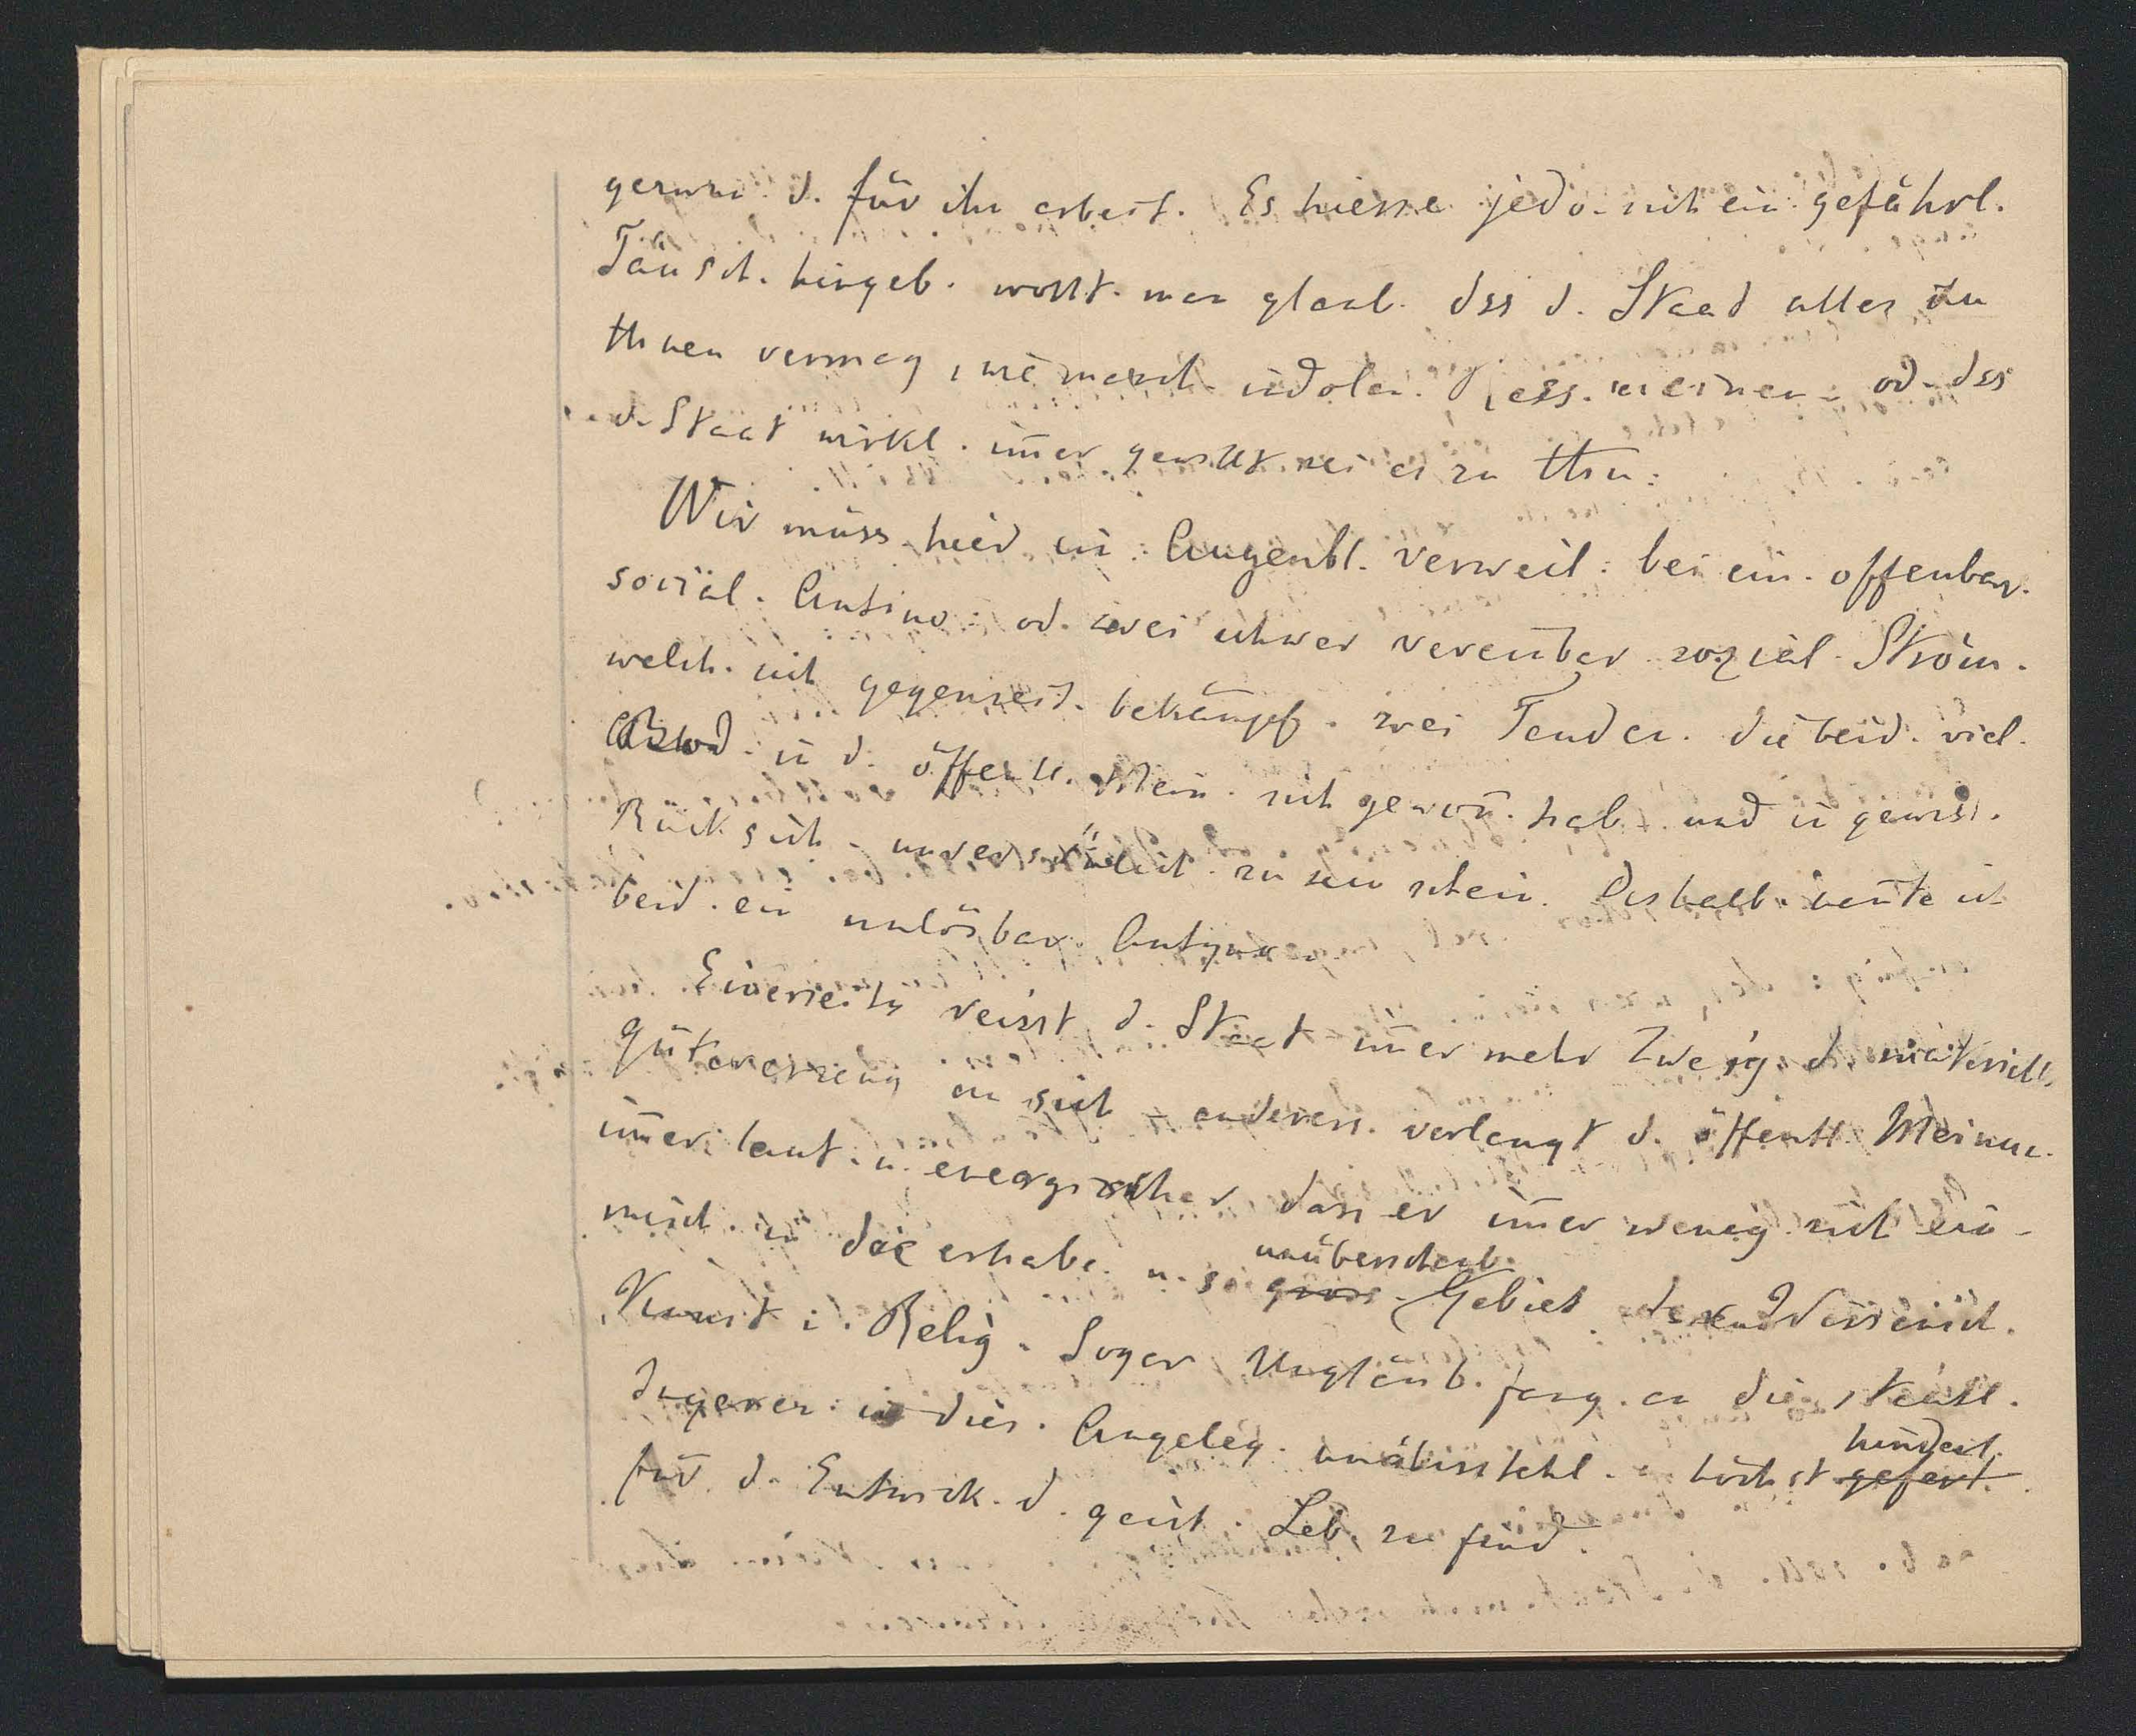 d. für ihn arbeit. Es hiesse jedo. sich ein gefährl.
Täusch. hingeb. wollt. man glaub. dss d. Staad alles zu
thuen vermag, wie manch. meinen. od. dss
d. Staat wirkl. im̅er gewillt sei es zu thu.
Wir müss. hier ein. Augenbl. verweil. bei ein. offenbar.
social. Antino. od. zwei schwer vereinbar. sozial. Ström.
welch. sich gegenseit. bekämpf. zwei Tenden. die beid. viel
in d. öffentl. Mein. sich gewon̅. hab. und in gewiss.
Rücksich. unversönlich. zu sein schein. Deshalb. heute ist
beid. ein unlösbar. Antino.
Einerseits reisst d. Staat im̅er mehr Zweig. d. materiell.
Gütererzeug an sich – anderers. verlangt d. öffentl. Meinu.
im̅er laut. u. energischer dass er im̅er wenig. sich ein-
misch. in das erhabe. u. so gross. unüberscheb. Gebiet der Wissensch.
Kunst i. Relig. Sogar Ungläub. fang. an die staatl.
Ingeren. in dies. Angeleg. unausstehl. höchst gefert. hinderl.
für d. Entwick. d. geist. Leb. zu find.